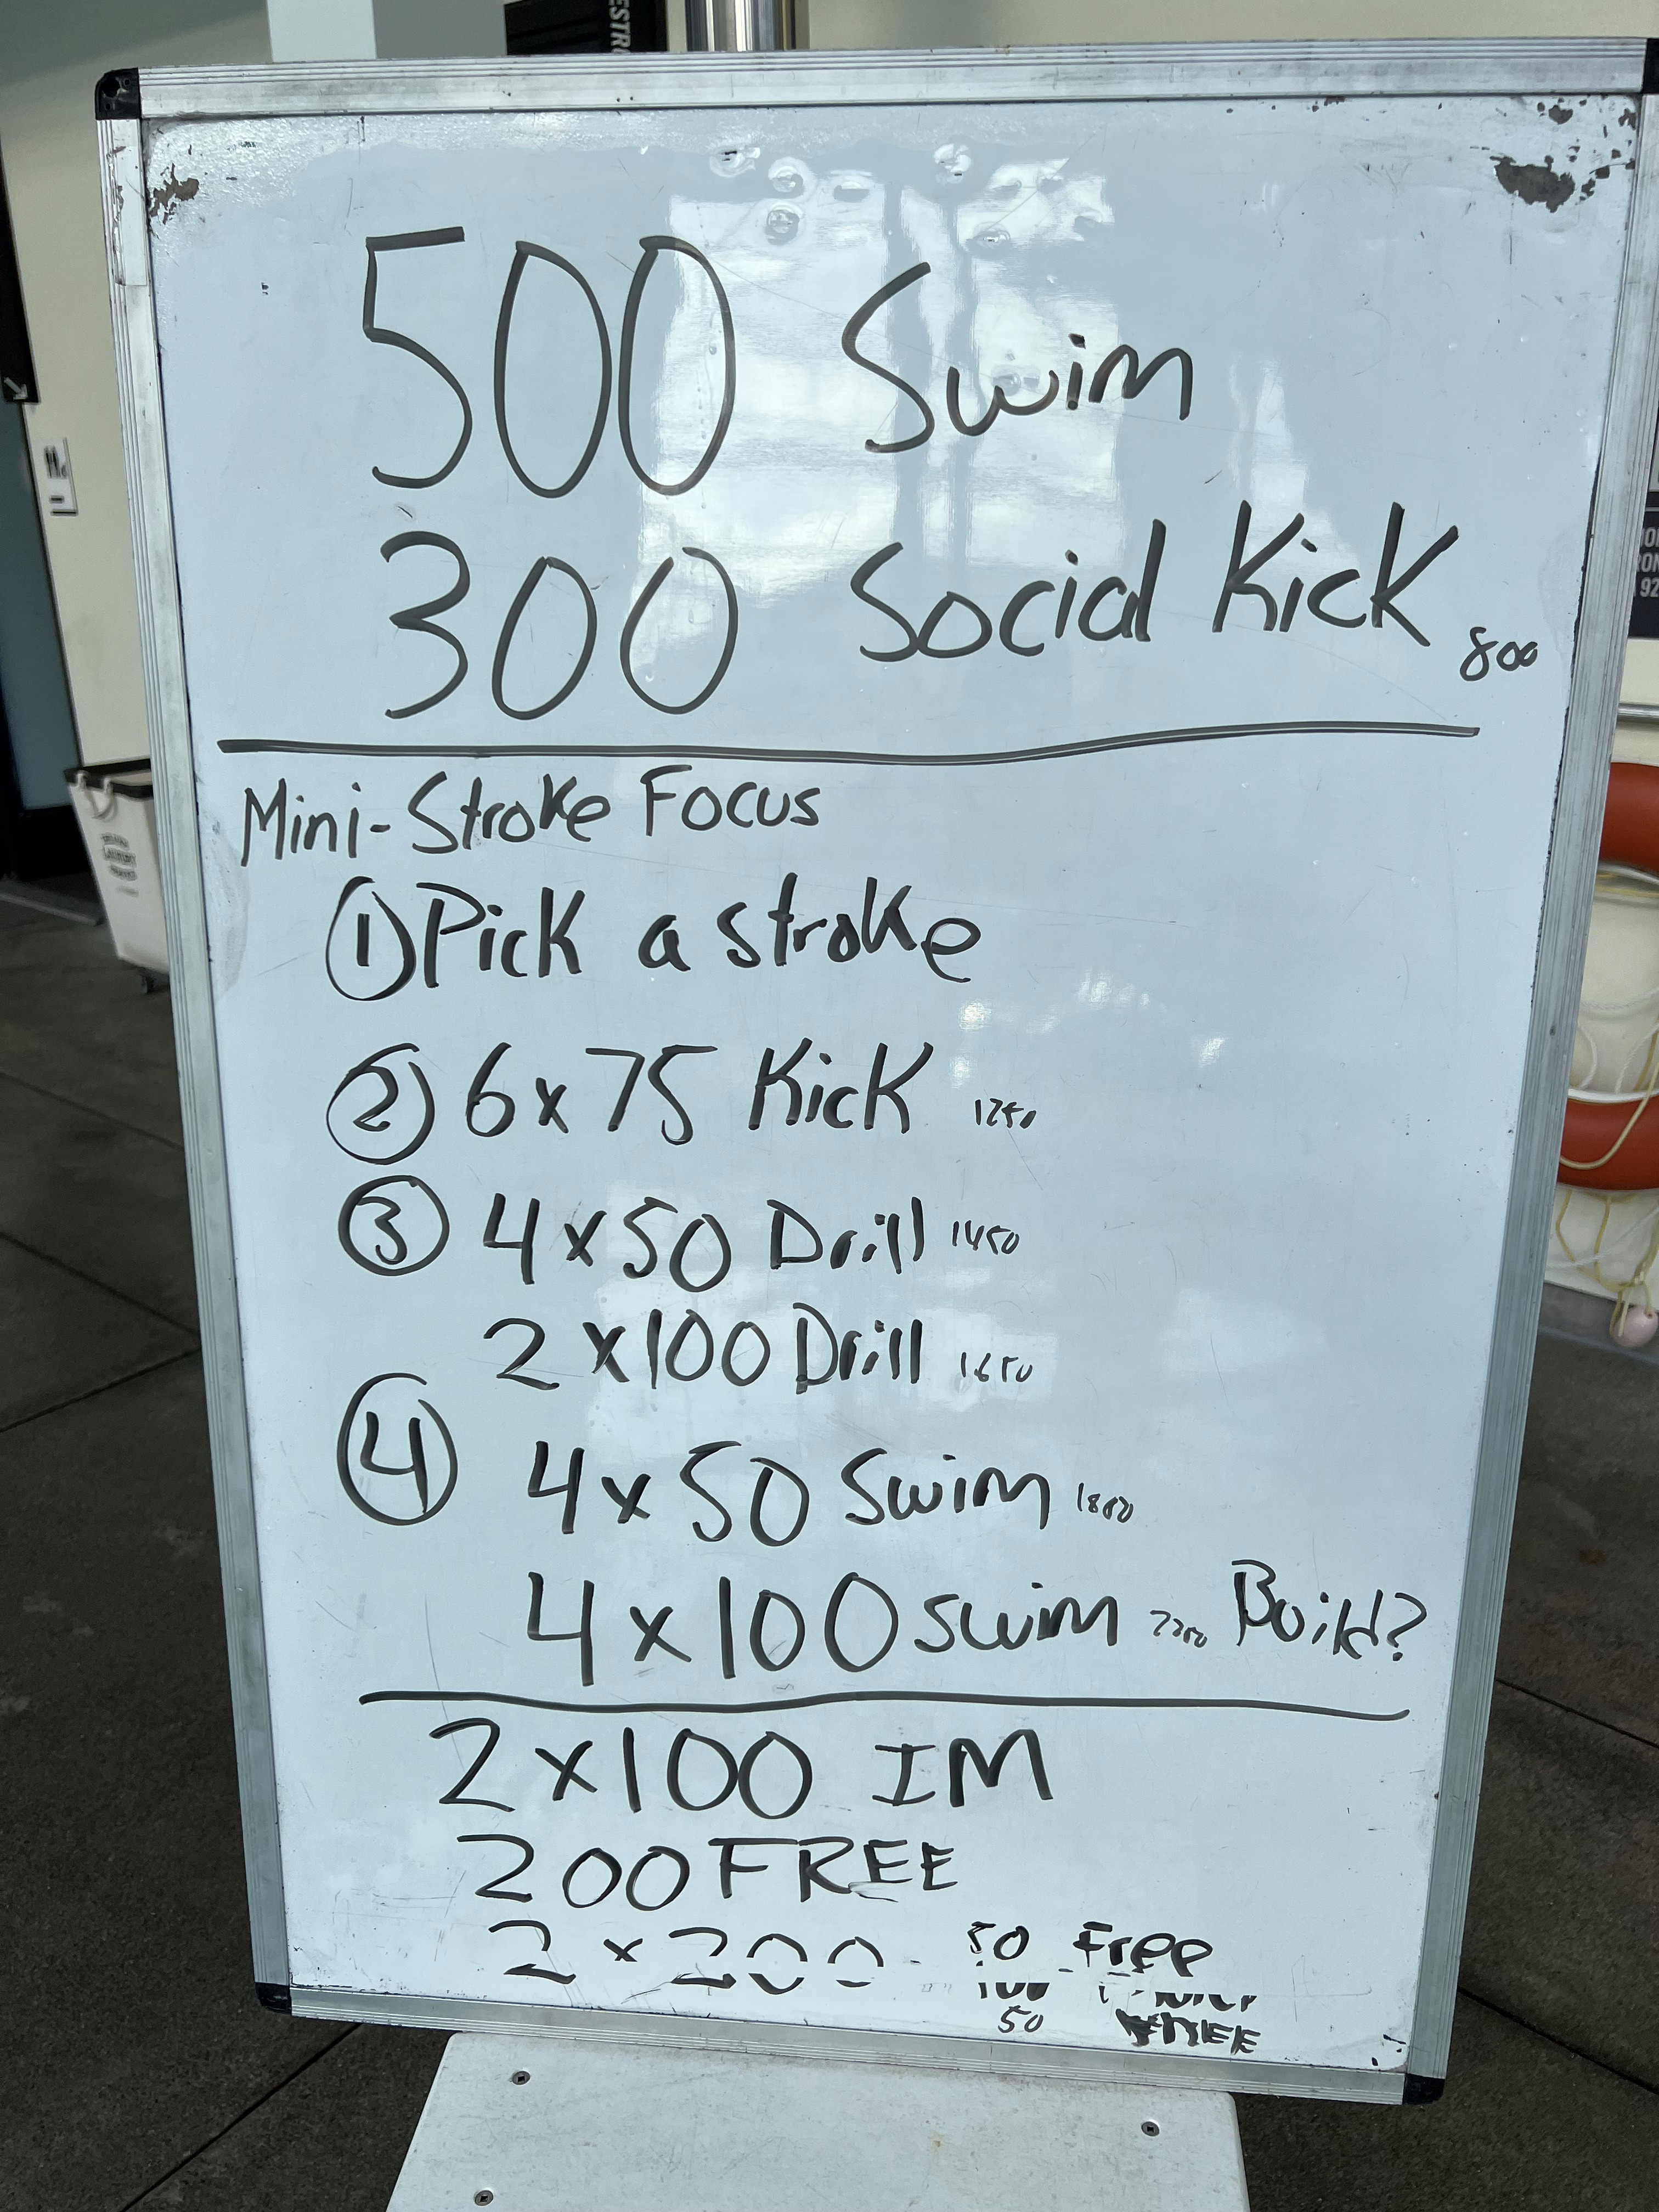 500 Swim
300 Social Kick 800
Mini-Stroke Focus
① Pick a stroke
② 6x75 Kick 1250
③ 4x50 Drill 1450
2x100 Drill 1650
④ 4x50 Swim 1850
4x100 swim Build?
2x100 IM
200 FREE
2x200 - 50 Free
100
50